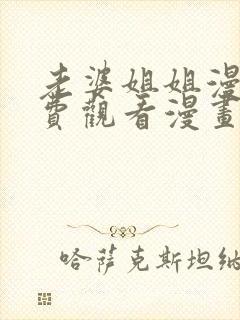 老婆姐姐漫
費觀看漫畫
哈萨克斯坦纳